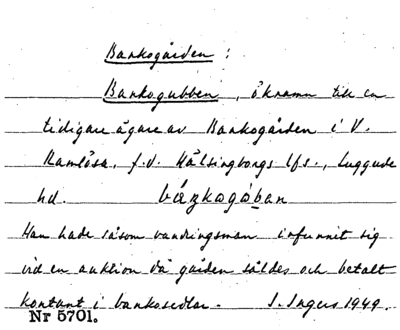 Bankogården :
Bankogubben, öknamn till en
tidigare ägare av Bankogården i V.
Ramlösa, f.d. Hälsingborgs lfs., Luggude
hd. báŋkogó̱ban
Han hade såsom vandringsman infunnit sig
vid en auktion då gården såldes och betalt
kontant i bankosedlar. I. Ingers 1949.
Nr 5701.